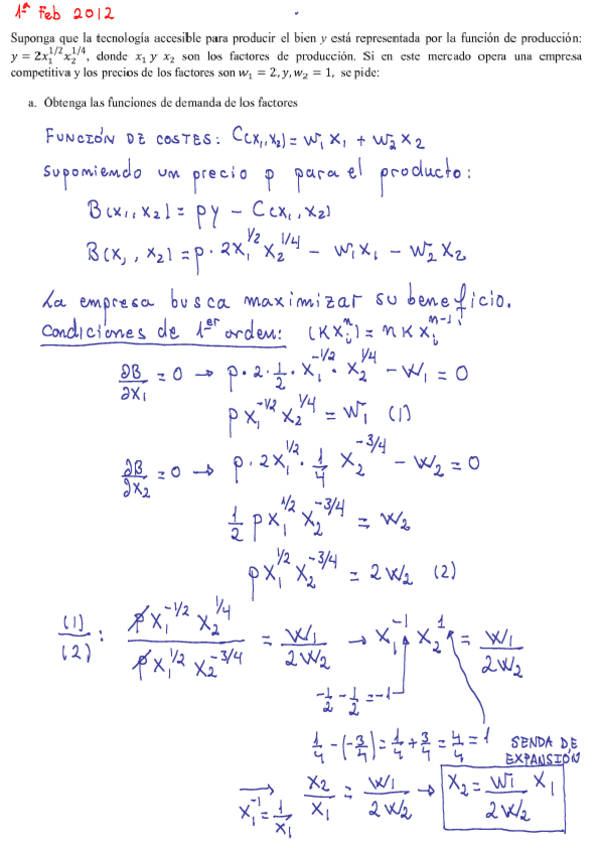 1ª Feb 2012
Suponga que la tecnología accesible para producir el bien y está representada por la función de producción:
y = 2x₁^{1/2}x₂^{1/4}, donde x₁ y x₂ son los factores de producción. Si en este mercado opera una empresa
competitiva y los precios de los factores son w₁ = 2, y, w₂ = 1, se pide:
a. Obtenga las funciones de demanda de los factores
FUNCIÓN DE COSTES: C(x₁,x₂) = w₁x₁ + w₂x₂
supomiendo um precio p para el producto:
B(x₁,x₂) = py - C(x₁,x₂)
B(x₁,x₂) = p·2x₁^{1/2}x₂^{1/4} - w₁x₁ - w₂x₂
La empresa busca maximizar su beneficio.
Condiciones de 1er orden: (Kxᵢⁿ)' = nKxᵢ^{n-1}
∂B/∂x₁ = 0 → p·2·1/2·x₁^{-1/2}·x₂^{1/4} - w₁ = 0
px₁^{-1/2}x₂^{1/4} = w₁ (1)
∂B/∂x₂ = 0 → p·2x₁^{1/2}·1/4 x₂^{-3/4} - w₂ = 0
1/2 px₁^{1/2}x₂^{-3/4} = w₂
px₁^{1/2}x₂^{-3/4} = 2w₂ (2)
(1)/(2): px₁^{-1/2}x₂^{1/4} / px₁^{1/2}x₂^{-3/4} = w₁/2w₂ → x₁^{-1}x₂^{1} = w₁/2w₂
-1/2 - 1/2 = -1
1/4 - (-3/4) = 1/4 + 3/4 = 4/4 = 1
SENDA DE
EXPANSIÓN
→ x₁^{-1} = 1/x₁ x₂/x₁ = w₁/2w₂ → x₂ = w₁/2w₂ x₁